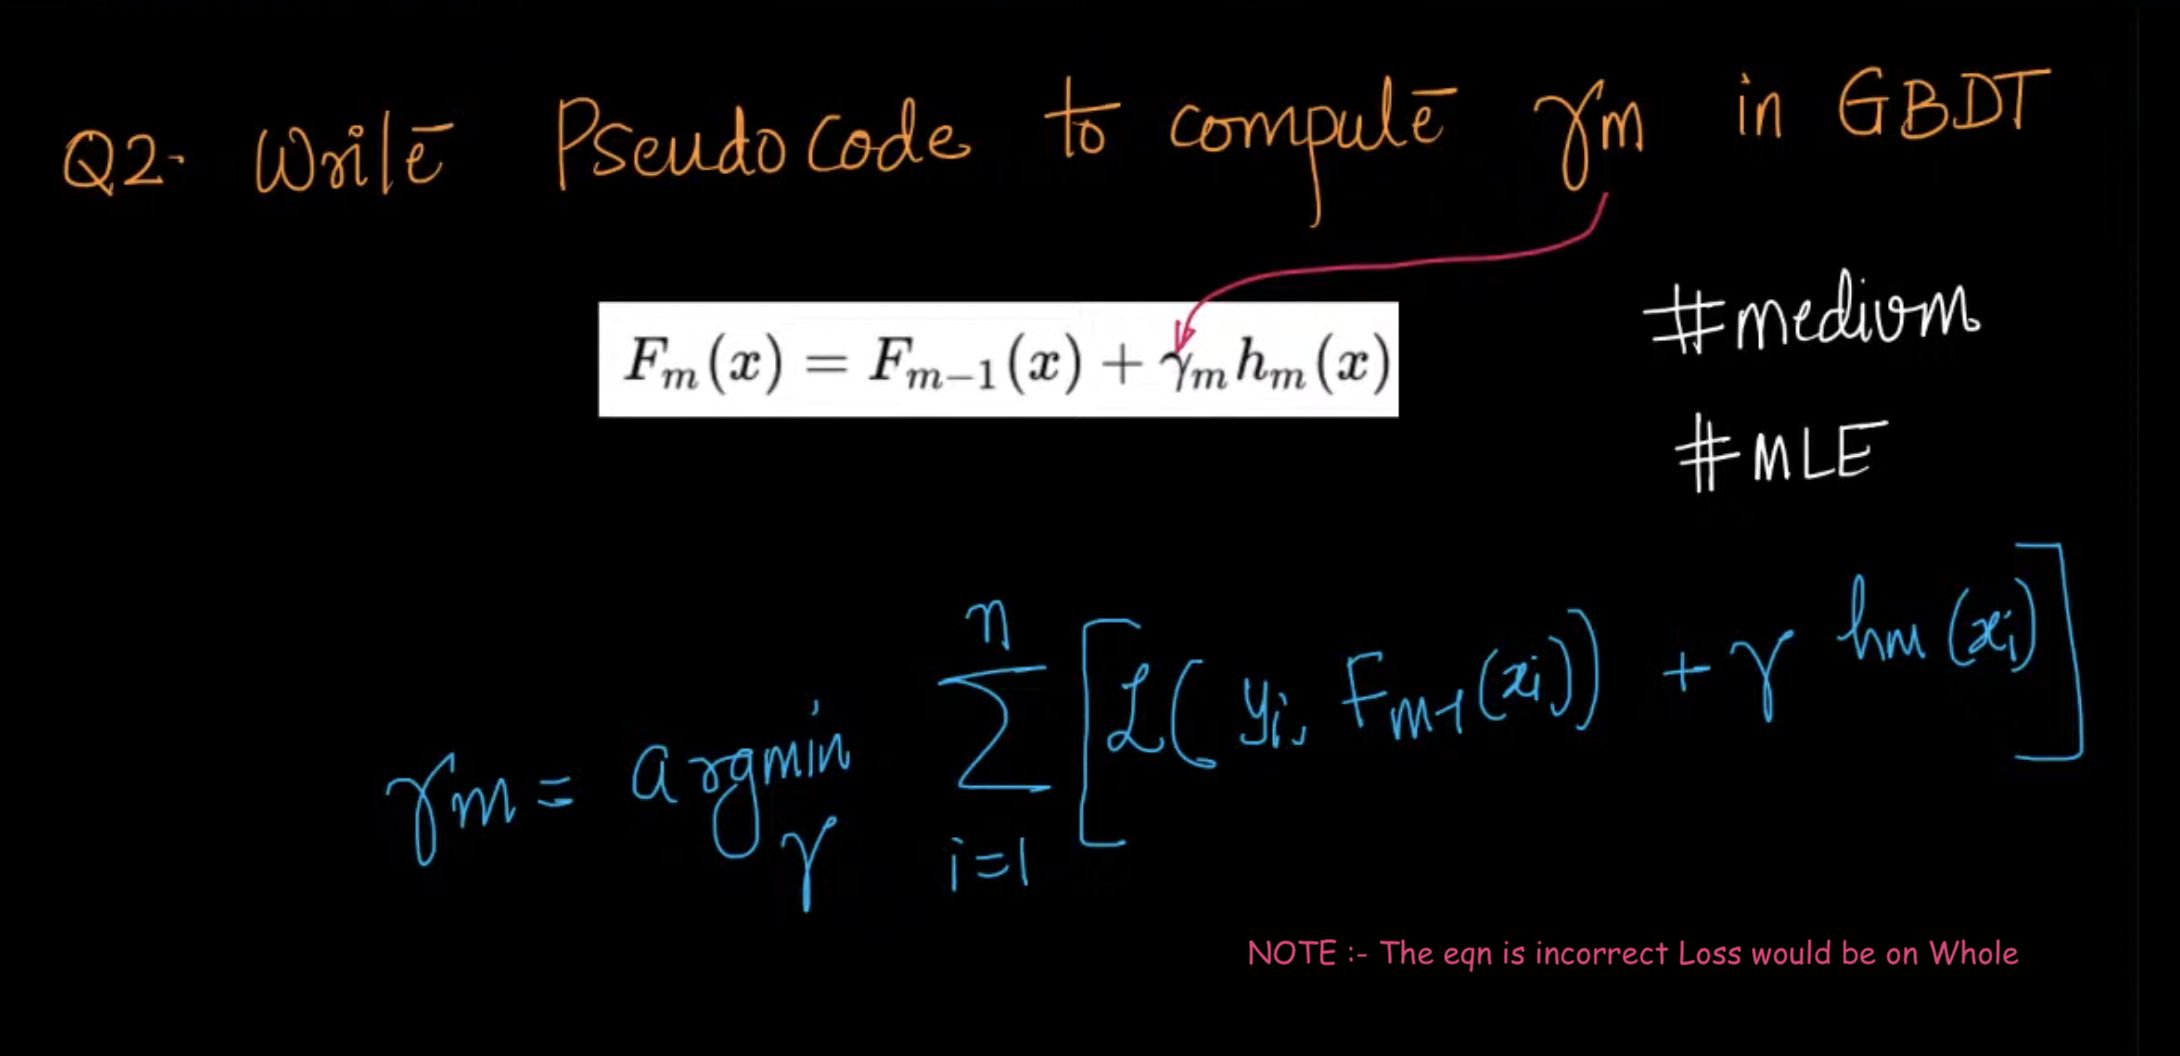 Q2- Write Pseudo Code to compute γm in GBDT
Fₘ(x) = Fₘ₋₁(x) + γₘhₘ(x)
#medium
#MLE
γm = argmin γ n Σ i=1 [L(yi, Fm-1(xi)) + γ hm(xi)]
NOTE :- The eqn is incorrect Loss would be on Whole